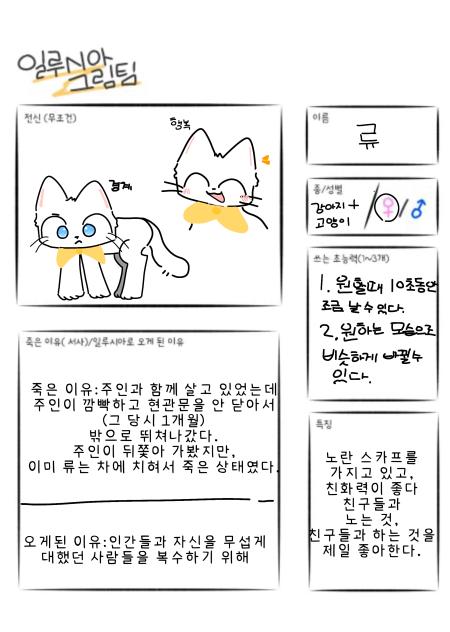 일루시아
그림팀
전신 (무조건)
행복
경계
이름
류
종/성별
강아지+
고양이
/♀/♂
쓰는 초능력(1~3개)
1. 원할때 10초동안
조금 날 수 있다.
2. 원하는 모습으로
비슷하게 바꿀 수
있다.
죽은 이유( 서사)/일루시아로 오게 된 이유
죽은 이유:주인과 함께 살고 있었는데
주인이 깜빡하고 현관문을 안 닫아서
(그 당시 1개월)
밖으로 뛰쳐나갔다.
주인이 뒤쫓아 가봤지만,
이미 류는 차에 치혀서 죽은 상태였다.
오게된 이유:인간들과 자신을 무섭게
대했던 사람들을 복수하기 위해
특징
노란 스카프를
가지고 있고,
친화력이 좋다
친구들과
노는 것,
친구들과 하는 것을
제일 좋아한다.